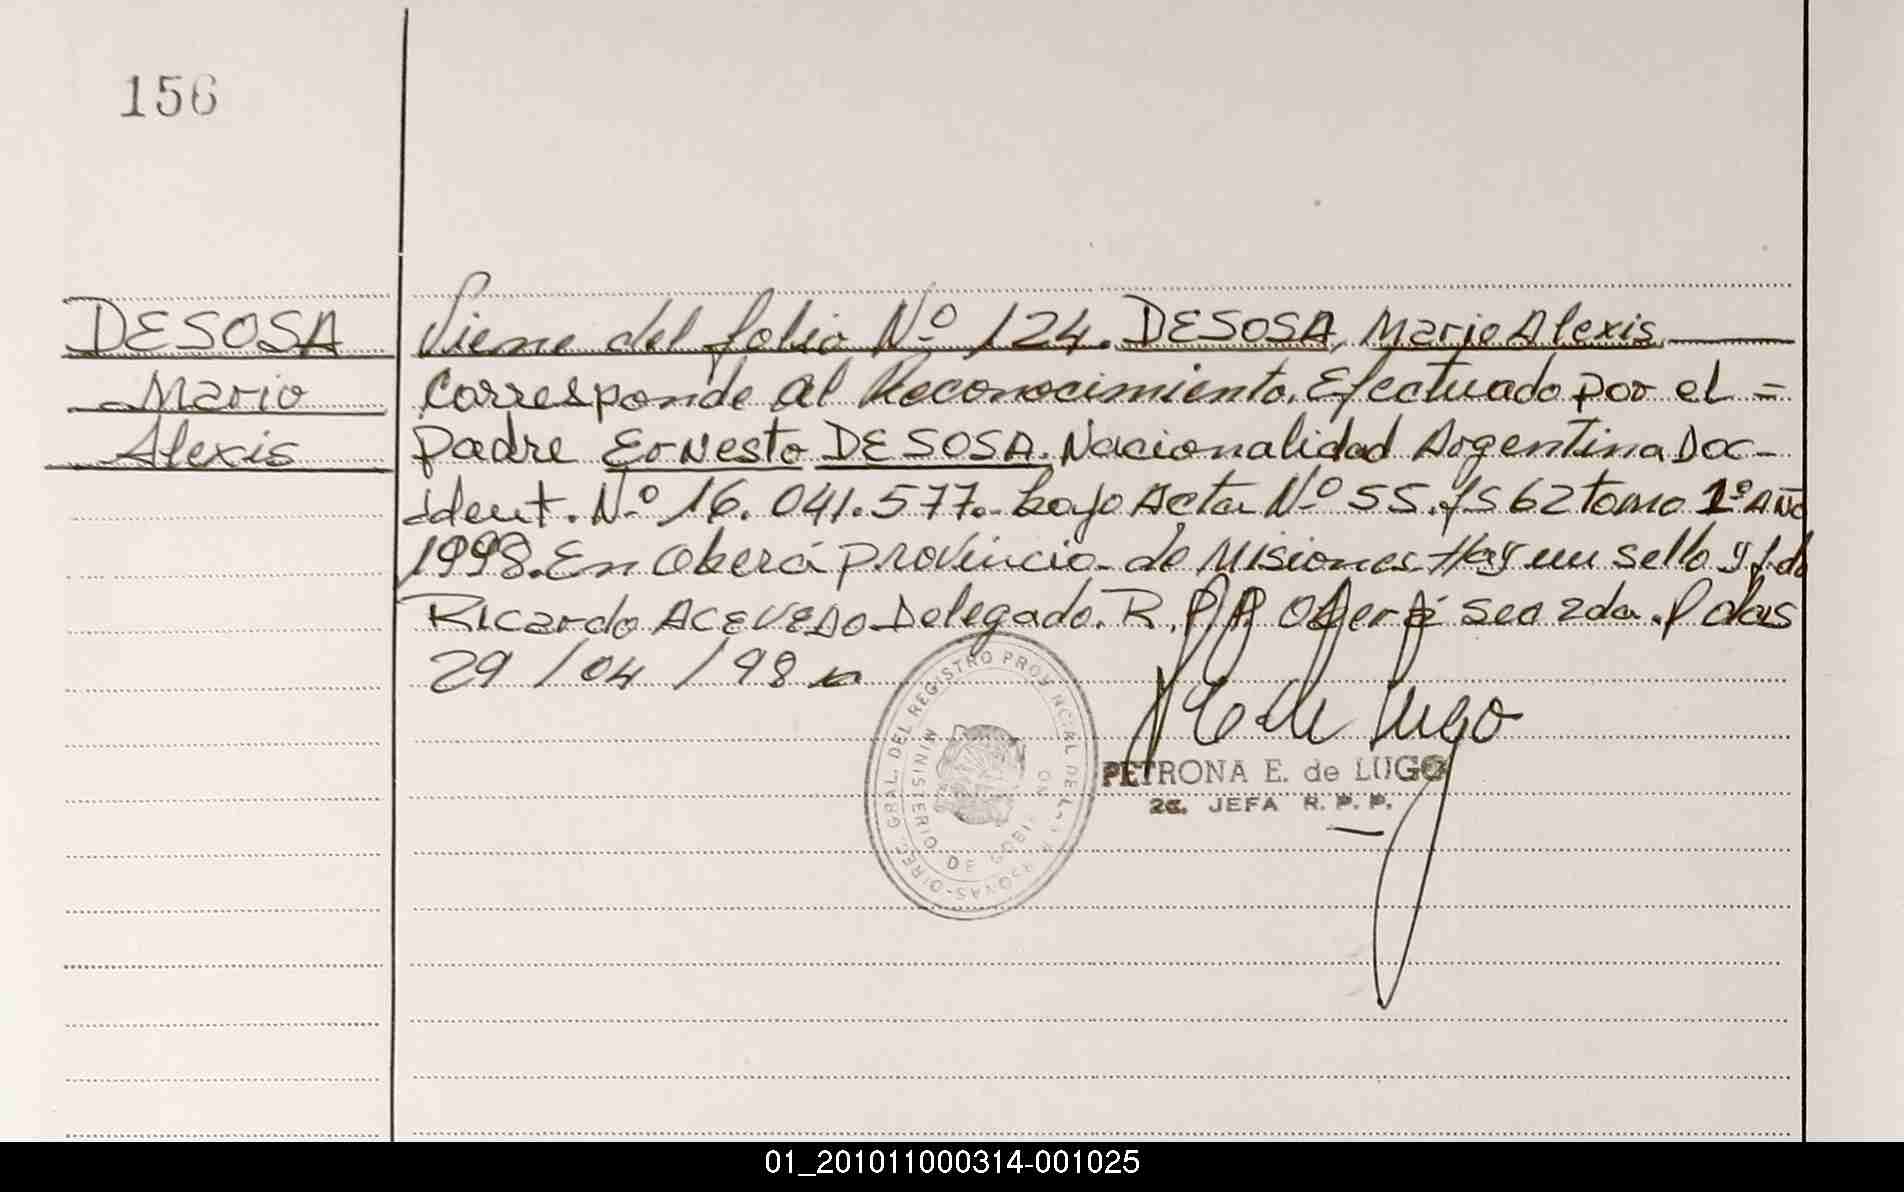 156
DESOSA
Mario
Alexis
Viene del folio Nº 124. DESOSA, Mario Alexis
Corresponde al Reconocimiento. Efectuado por el =
padre Ernesto DESOSA. Nacionalidad Argentina Doc-
ident. Nº 16.041.577.- bajo Acta Nº 55. fs 62 tomo 1º AÑO
1998. En Oberá provincia de Misiones. Hay un sello y f. do
Ricardo ACEVEDO Delegado. R.P.P. Oberá Sec 2da. Pdas
29/04/98
DIREC. GRAL. DEL REGISTRO PROVINCIAL DE LAS PERSONAS
MINISTERIO DE GOBIERNO
PETRONA E. de LUGO
2a. JEFA R. P. P.
01_201011000314-001025